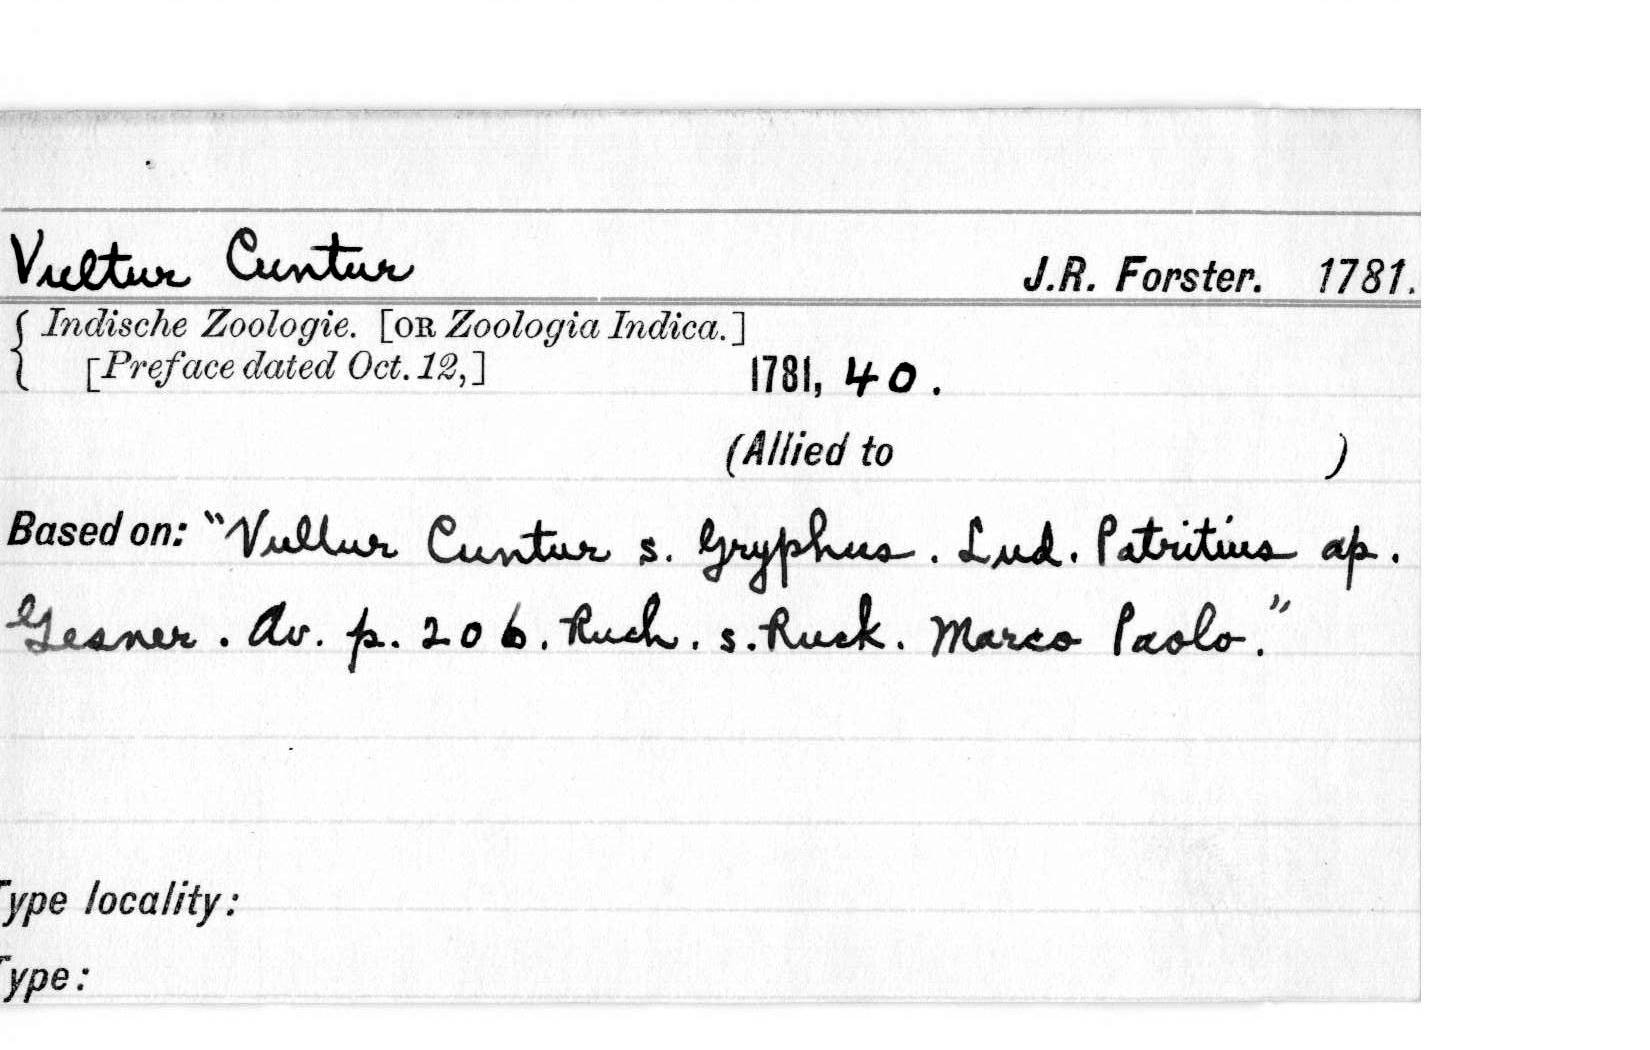 Vultur Cuntur J.R. Forster. 1781.
{ Indische Zoologie. [OR Zoologia Indica.]
[Preface dated Oct. 12,] 1781, 40.
(Allied to )
Based on: "Vultur Cuntur s. Gryphus. Lud. Patritius ap.
Gesner. Av. p. 206. Ruch. s. Ruck. Marco Paolo."
Type locality:
Type: